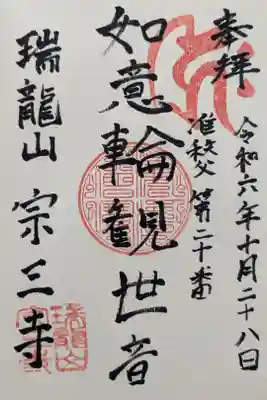 奉拝
令和六年十月二十八日
准秩父 第二十番
如意輪観世音
瑞龍山 宗三寺